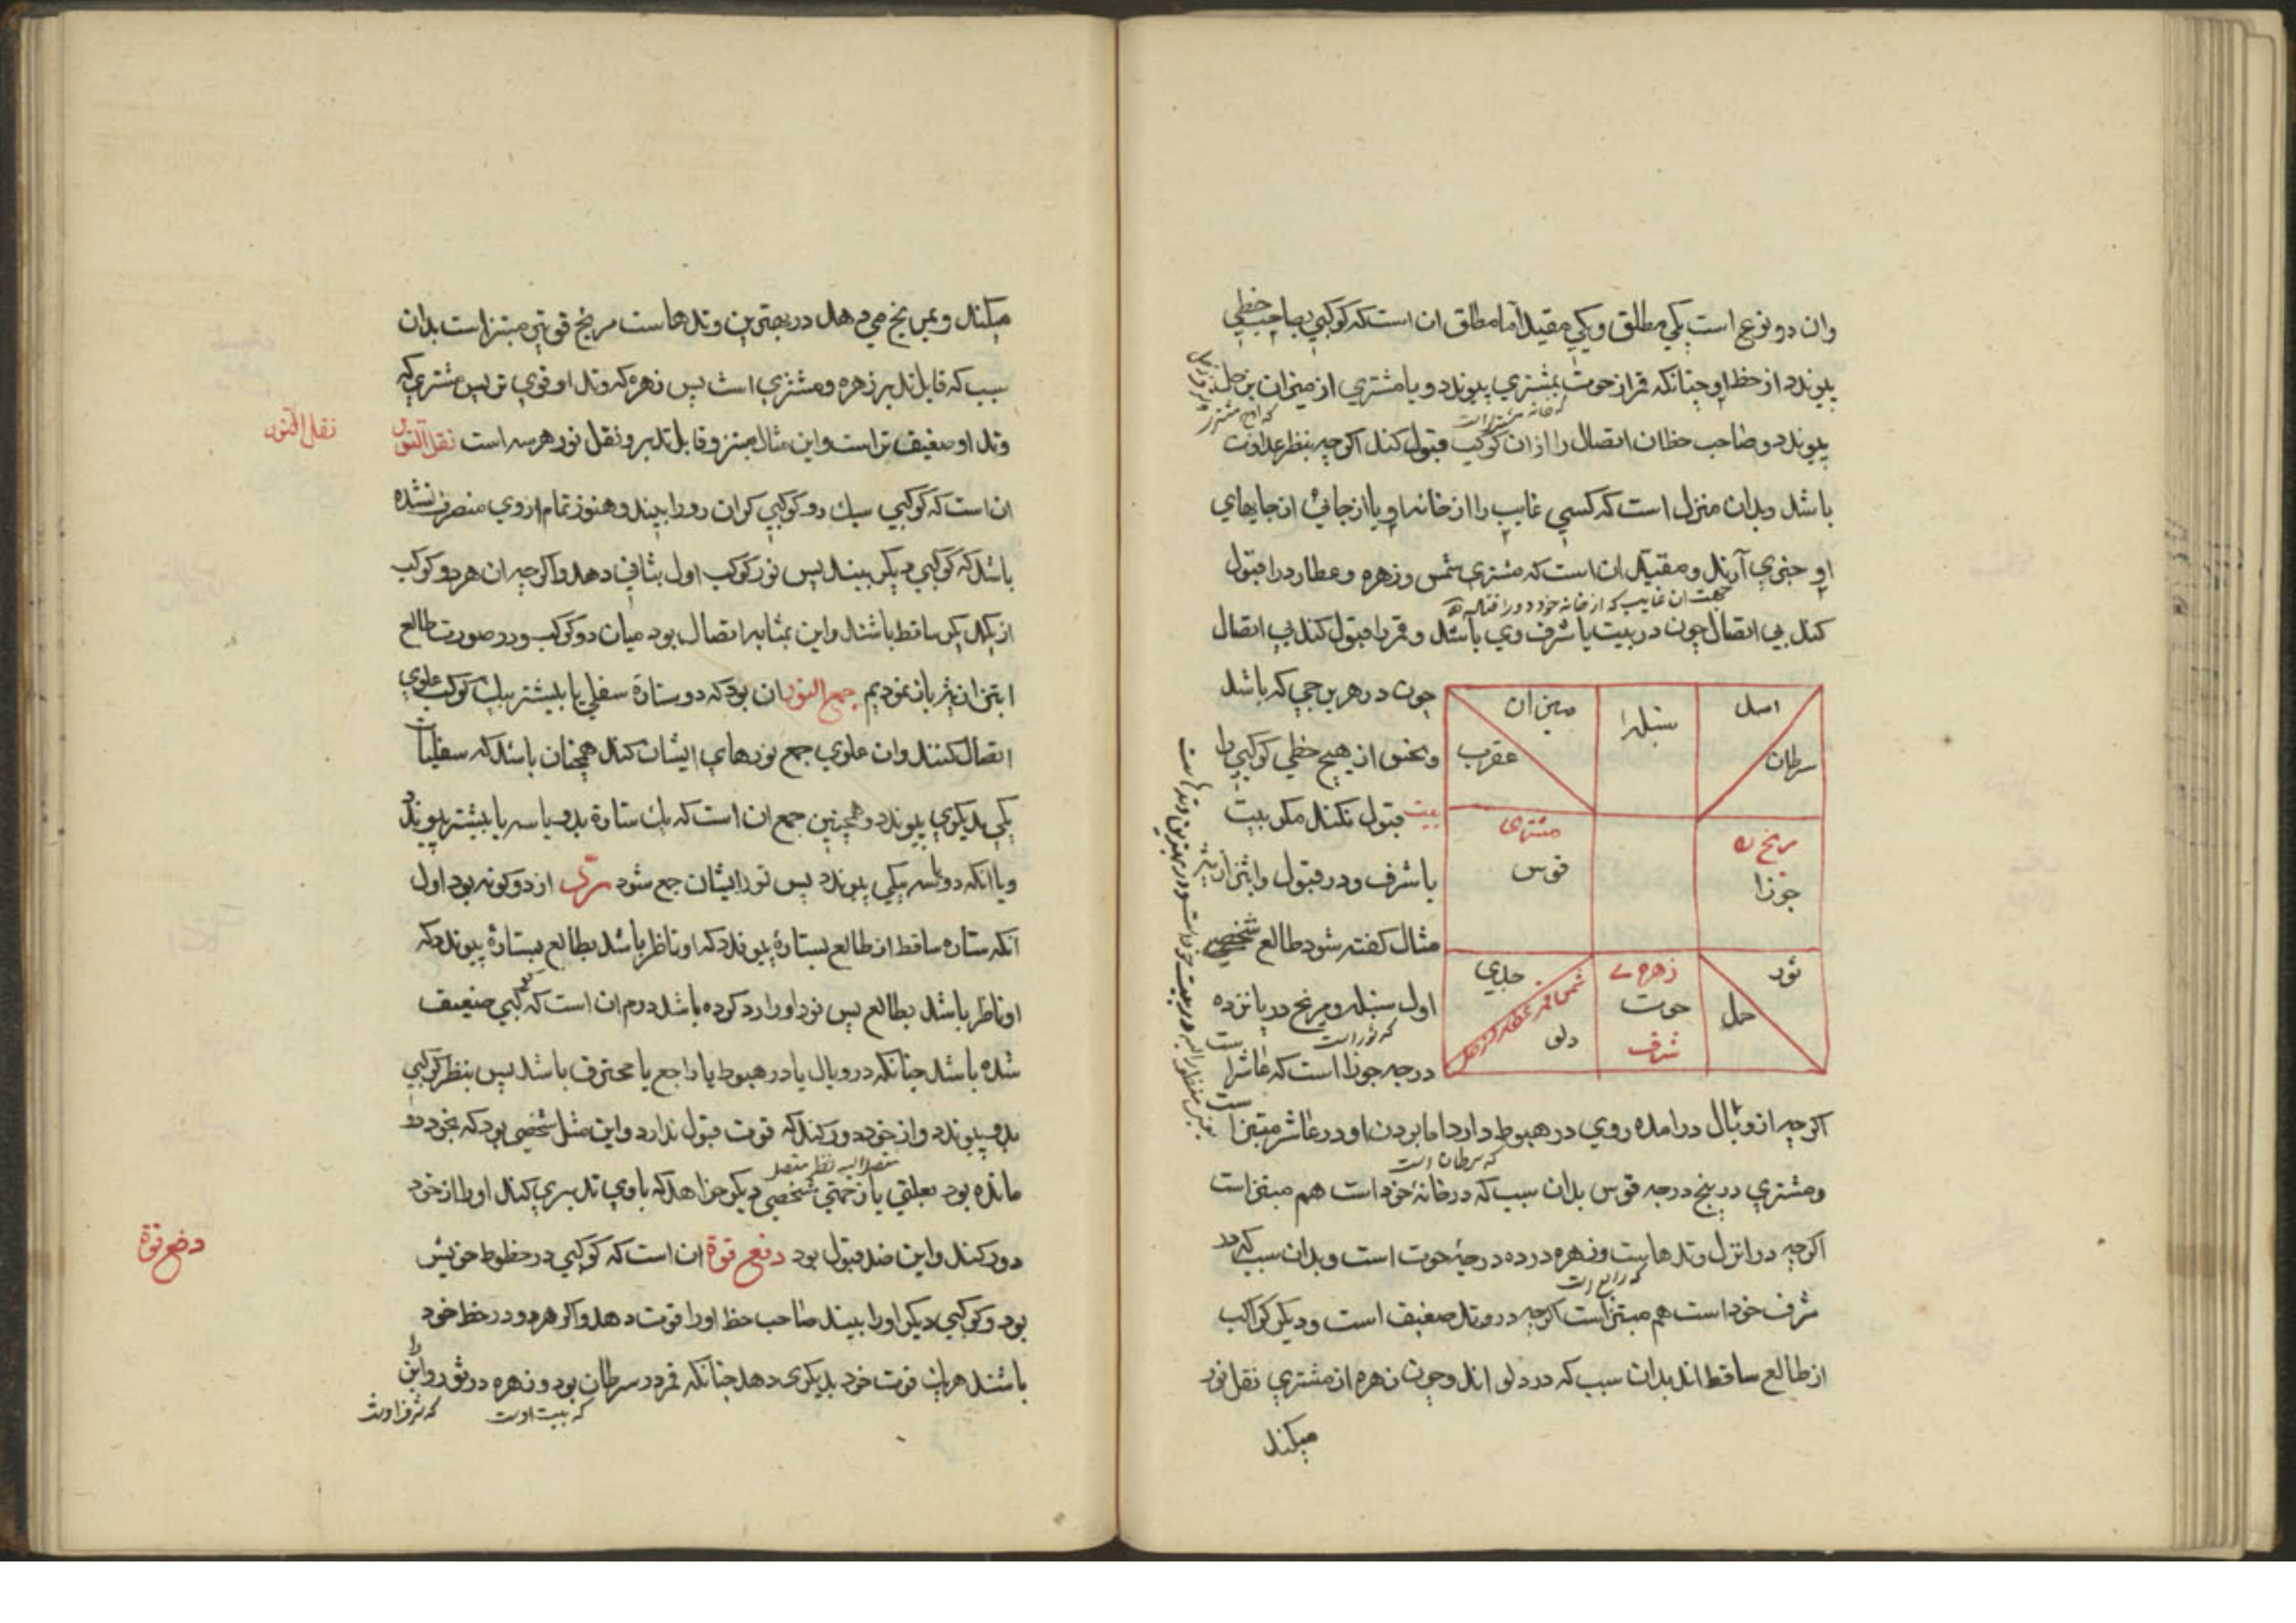 وان دو نوع است یکي مطلق و یکي مقید اما مطلق ان است که کوکبي بصاحب حظي
پیوندد از حظ او چنانکه قمر از حوت بمشتري پیوندد و یا مشتري از میزان بزحل
که خانه مشتریست
پیوندد و صاحب حظ ان اتصال را از ان کوکب قبول کند اکرچه بنظر عداوت
باشد و بدان منزل است که کسي غایب را از خانه او یا از جائي از جایهاي
او خبري آرند و مقید ان است که مشتري شمس و زهره و عطارد را قبول
جهت ان غایب که از خانه خود دور افتاده
کند بي اتصال چون در بیت یا شرف وي باشند و قمر را قبول کند بي اتصال
چون در هر برجي که باشد
و نحس از هیچ حظي کوکبي را
قبول نکند مکر بیت
بیت
یا شرف و در قبول و ابتزاز
مثال کفته شود طالع شخصي
اول سنبله و مریخ در پانزده
که ثور است
درجه جوزا است که عاشر
اسد
سرطان
سنبله
میزان
عقرب
مریخ
جوزا
مشتري
قوس
ثور
حمل
زهره
حوت
شرف
جدي
دلو
اکرچه از وبال درامده روي در هبوط دارد اما بودن او در عاشر مبتز است
که سرطان است
و مشتري در پنج درجه قوس بدان سبب که در خانهٔ خود است هم مبتز است
اکرچه در انزل وتدهاست و زهره در ده درجهٔ حوت است و بدان سبب که در
که رابع است
شرف خود است هم مبتز است اکرچه در وتد ضعیف است و دیکر کواکب
از طالع ساقط اند بدان سبب که در دلو اند و چون زهره از مشتري نقل نور
میکند
میکند و بمریخ مي دهد در بهترین وتدهاست مریخ قوي ترین مبتز است بدان
سبب که قابل تدبر زهره و مشتري است پس زهره که وتد او قوي تر پس مشتري که
وتد او ضعیف تر است و این مثال مبتز و قابل تدبر و نقل نور هر سه است نقل النور
نقل النور
ان است که کوکبي سبک رو کوکبي کران رو را بیند و هنوز تمام از وي منصرف نشده
باشد که کوکبي دیکر بیند پس نور کوکب اول بثاني دهد و اکرچه ان هر دو کوکب
از یکدیکر ساقط باشند و این بمثابه اتصال بود میان دو کوکب و در صورت طالع
ابتزاز نیز باز نمودیم جمع النور ان بود که دو ستارهٔ سفلي یا بیشتر بیک کوکب علوي
اتصال کنند و ان علوي جمع نورهاي ایشان کند همچنان باشد که سفلیات
یکي بدیکري پیوندد و همچنین جمع ان است که یک ستاره بدو یا سه یا بیشتر پیوندد
و یا انکه دو یا سه بیکي پیوندد پس نور ایشان جمع شود رد از دو کونه بود اول
انکه ستاره ساقط از طالع بستارهٔ پیوندد که او ناظر باشد بطالع بستارهٔ پیوندد که
او ناظر باشد بطالع پس نور او را رد کرده باشد دوم ان است که کوکبي ضعیف
شده باشد چنانکه در وبال یا در هبوط یا راجع یا محترق باشد پس بنظر کوکبي
بدو پیوندد و از خود دور کند که قوت قبول ندارد و این مثل شخصي بود که بخود در
متصل الیه نظر متصل
مانده بود بعلتي یا زحمتي شخصي دیکر خواهد که با وي تدبیري کند او را از خود
دور کند و این ضد قبول بود دفع قوة ان است که کوکبي در حظوظ خویش
دفع قوة
بود و کوکبي دیکر او را بیند صاحب حظ او را قوت دهد و اکر هر دو در حظ خود
باشند هر یک قوت خود بدیکري دهد چنانکه قمر در سرطان بود و زهره در ثور و این
که بیت اوست
که شرف اوست